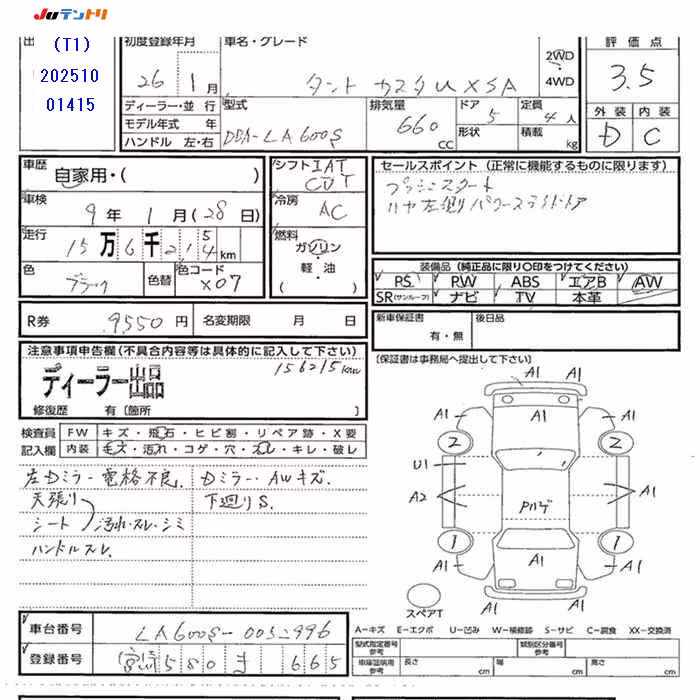 JUテントリ
(T1)
202510
01415
出
初度登録年月
26年 1月
車名・グレード
タント カスタム X SA
2WD
・
4WD
評価点
3.5
ディーラー・並行
モデル年式 年
ハンドル 左・右
型式
DBA-LA600S
排気量
660
CC
ドア
5
形状
定員
4人
積載
kg
外装 内装
D C
車歴
自家用・( )
車検
9年 1月(28日)
走行
15万6千215km
色
ブラック
色替
色コード
X07
シフト IAT
CVT
冷房
AC
燃料
ガソリン
軽・油
( )
セールスポイント (正常に機能するものに限ります)
プッシュスタート
リヤ左側パワースライドドア
装備品 (純正品に限り〇印をつけてください)
PS PW ABS エアB AW
SR(サンルーフ) ナビ TV 本革
R券 9550円
名変期限 月 日
新車保証書
有・無
後日品
(保証書は事務局へ提出して下さい)
注意事項申告欄(不具合内容等は具体的に記入して下さい)
156215km
ディーラー出品
修復歴 有〔箇所 〕
検査員 FW キズ・飛石・ヒビ割・リペア跡・X要
記入欄 内装 毛ズ・汚れ・コゲ・穴・スレ・キレ・破レ
左Dミラー電格不良. Dミラー・AWキズ.
天張り 下廻りS.
シート 汚れ・スレ・シミ
ハンドルスレ.
A1
A1
A1
A1
A1
2
2
U1
A2
A1
Pハゲ
1
1
A1
A1
A1
A1
スペアT
車台番号 LA600S-0052996
登録番号 宮崎 580 ま 665
A-キズ E-エクボ U-凹み W-補修跡 S-サビ C-腐食 XX-交換済
型式指定番号
参考
類別区分番号
参考
車庫証明用
参考
長さ cm 幅 cm 高さ cm